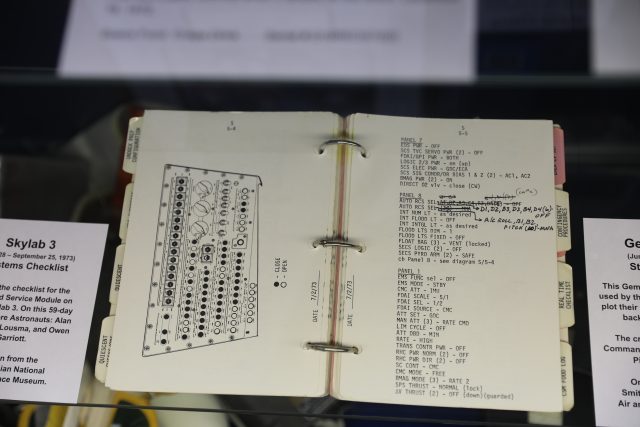 Skylab 3
28 – September 25, 1973)
stems Checklist
the checklist for the
d Service Module on
lab 3. On this 59-day
re Astronauts: Alan
Lousma, and Owen
Garriott.
n from the
ian National
ace Museum.
UNDOCK PREP
CONFIGURATION
QUIESCENT
QUIESCENT
S
S-4
● - CLOSE
○ - OPEN
DATE 7/2/73
S
S-5
DATE 7/2/73
PANEL 7
EDS PWR - OFF
SCS TVC SERVO PWR (2) - OFF
FDAI/GPI PWR - BOTH
LOGIC 2/3 PWR - on (up)
SCS ELEC PWR - GDC/ECA
SCS SIG COND/DR BIAS 1 & 2 (2) - AC1, AC2
BMAG PWR (2) - ON
DIRECT O2 vlv - close (CW)
PANEL 8
AUTO RCS SEL
AUTO RCS SEL
INT NUM LT - as desired
INT FLOOD LT - OFF
INT INTGL LT - as desired
FLOOD LTS DIM - 1
FLOOD LTS FIXED - OFF
FLOAT BAG (3) - VENT (locked)
SECS LOGIC (2) - OFF
SECS PYRO ARM (2) - SAFE
cb Panel 8 - see diagram S/S-4
PANEL 1
EMS FUNC sel - OFF
EMS MODE - STBY
CMC ATT - IMU
FDAI SCALE - 5/1
FDAI SEL - 1/2
FDAI SOURCE - CMC
ATT SET - GDC
MAN ATT (3) - RATE CMD
LIM CYCLE - OFF
ATT DBD - MIN
RATE - HIGH
TRANS CONTR PWR - OFF
RHC PWR NORM (2) - OFF
RHC PWR DIR (2) - OFF
SC CONT - CMC
CMC MODE - FREE
BMAG MODE (3) - RATE 2
SPS THRUST - NORMAL (lock)
ΔV THRUST (2) - OFF (down)(guarded)
CONTINGENCY
PROCEDURES
REAL TIME
CHECKLIST
CSM FOOD LOG
Ge
(Ju
St
This Gem
used by th
plot their
back
The cr
Comman
Pi
On
Smit
Air an